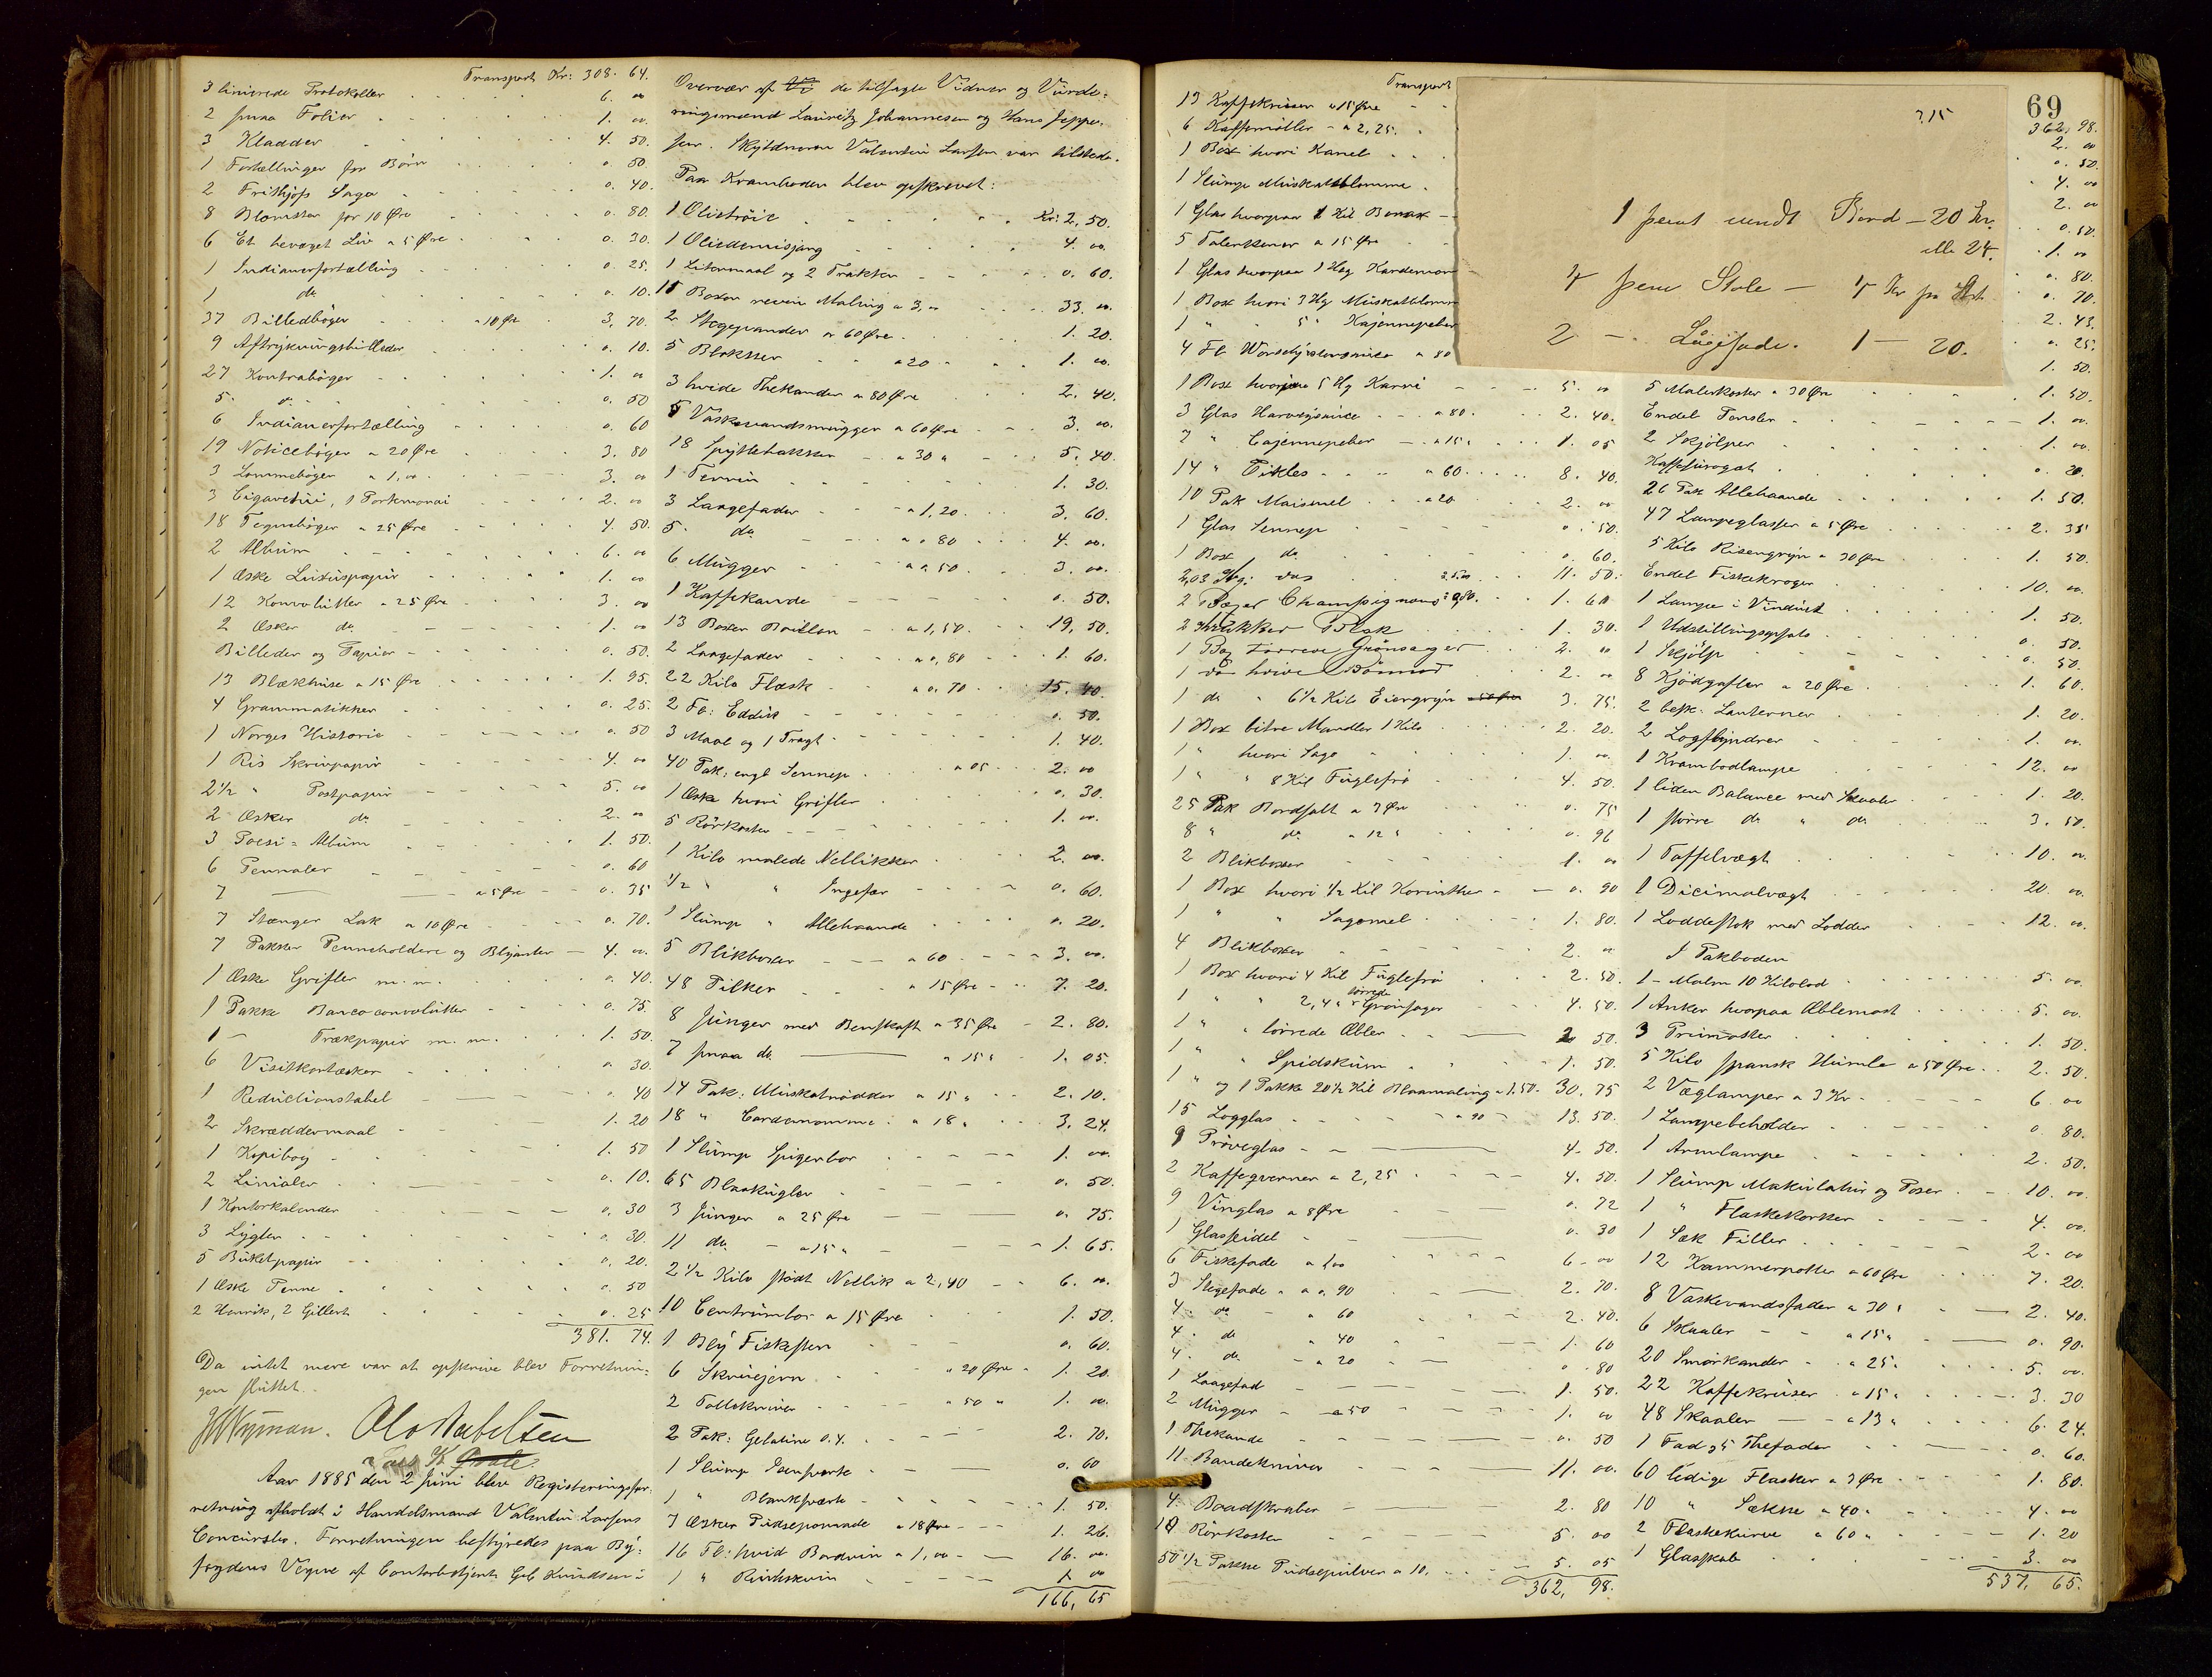 Transport Kr: 308. 64.
3 linierede Protokoller 6. 00
2 smaa Folier 1. 00.
3 Kladder 4. 50.
1 Fortællinger for Børn 0. 50
2 Frithjofs Saga 0. 40.
8 Blomster for 10 Øre 0. 80.
6 Et bevæget Liv a 5 Øre 0. 30.
1 Indianerfortælling 0. 25.
1 do 0. 10.
37 Billedbøger a 10 Øre 3. 70.
9 Aftrykningsbilleder 0. 10.
27 Kontrabøger 1. 00
5 do 0. 50
6 Indianerfortælling 0. 60
19 Noticebøger a 20 Øre 3. 80
3 Lommebøger a 1,00 3. 00
3 Cigaretui, 1 Portemonai 2. 00
18 Tegnebøger a 25 Øre 4. 50.
2 Album 6. 00
1 Æske Luxuspapir 1. 00
12 Konvolutter a 25 Øre 3. 00
2 Æsker do 1. 00
Billeder og Papir 0. 50.
13 Blækhuse a 15 Øre 1. 95.
4 Grammatikker 0. 25.
1 Norges Historie 0. 50
1 Ris Skrivpapir 4. 00
2 1/2 " Postpapir 5. 00
2 Æsker do 2. 00
3 Poesi-Album 1. 50.
6 Pennaler 0. 60
7 — a 5 Øre 0. 35
7 Stænger Lak a 10 Øre 0. 70.
7 Pakker Penneholdere og Blyanter 4. 00.
1 Æske Grifler m. m. 0. 40.
1 Pakke Bancoconvolutter 0. 75.
1 — Trækpapir m. m. 1. 50.
6 Visitkortæsker 0. 30.
1 Reductionstabel 0. 40
2 Skræddermaal 1. 20
1 Kopibog 1. 50
2 Linialer 0. 10.
1 Kontorkalender 0. 30
3 Lygter 0. 30.
5 Buketpapir 0. 20.
1 Æske Penne 0. 50
2 Henrik, 2 Gillert 0. 25
381. 74.
Da intet mere var at opskrive blev Forretnin-
gen sluttet.
Aar 1885 den 2 Juni blev Registeringsfor-
retning afholdt i Handelsmand Valentin Larsens
Concursbo. Forretningen bestyredes paa By-
fogdens Vegne af Contorbetjent Knudsen i
Overvær af de tilsagte Vidner og Vurde-
ringsmænd Lauritz Johannesen og Hans Jeppe-
sen. Skyldneren Valentin Larsen var tilstede.
Paa Kramboden blev opskrevet:
1 Olietrøie Kr: 2, 50.
1 Oliedemisjang 4. 00.
1 Litermaal og 2 Trakter 0. 60.
11 Boxer reven Maling a 3,00 33. 00.
2 Stegepander a 60 Øre 1. 20.
5 Blokker a 20 1. 00.
3 hvide Thekander a 80 Øre 2. 40.
5 Vaskevandsmugger a 60 Øre 3. 00.
18 Spyttebakker a 30 " 5. 40.
1 Terrin 1. 30.
3 Laagefader a 1,20 3. 60.
5 do a 0 80 4. 00.
6 Mugger a 0 50 3. 00.
1 Kaffekande 0. 50.
13 Boxer Bouillon a 1,50 19, 50.
2 Laagefader a 0, 80 1. 60.
22 Kilo Flæsk a 0. 70 15. 40.
2 Fl: Eddik 0. 50.
3 Maal og 1 Tragt 1. 40.
40 Pak: engl Sennep a 05 2. 00
1 Æske hvori Grifler 0. 30.
5 Rørkoster 1. 00.
1 Kilo malede Nellikker 2. 00.
1/2 " " Ingefær 0. 60.
1 Slump " Allehaande 0. 20.
5 Blikboxer a 60 3. 00.
48 Pilker a 15 Øre 7. 20.
8 Junger med Benskaft a 35 Øre 2. 80.
7 smaa do a 15 " 1. 05.
14 Pak: Muskatnødder a 15 " 2. 10.
18 " Cardemomme a 18 " 3. 24.
1 Slump Spigerbor 1. 00.
65 Blaakugler 0. 50.
3 Junger a 25 Øre 0. 75.
11 do a 15 " 1. 65.
2 1/2 Kilo stødt Nellik a 2,40 6. 00.
10 Centrumbor a 15 Øre 1. 50.
1 Bly Fiskesten 0. 60.
6 Skruejern a 20 Øre 1. 20.
2 Tolleknive a 50 " 1. 00.
2 Pak: Gelatine 2. 70.
1 Slump Jernsværte 0. 60
1 " Blanksværte 1. 50.
7 Æsker Pudsepomade a 18 Øre 1. 26.
16 Fl: hvid Bordvin a 1,00 16. 00.
1 " Rinskvin 1 00
166, 65
Transport
13 Kaffekruser a 15 Øre
6 Kaffemøller a 2,25.
1 Box hvori Kanel
1 Slump Muskatblomme
1 Glas hvorpaa 1 Kil Borax
5 Talerkener a 15 Øre
1 Glas hvorpaa 1 Hg Kardemom
1 Box hvori 3 Hg Muskatblomm
1 " " 5 " Kajennepeber
4 Fl. a 80
1 Box hvorpaa 5 Hg Karri 5. 00
3 Glas Harveysauce a 80. 2. 40.
7 " Cajennepeber a 15 " 1. 05
14 " Pikles a 60. 8. 40.
10 Pak Maismel a 20 2. 00
1 Glas Sennep 0. 50.
1 Box do 0. 60.
11. 50.
2 Bøger Champignons 1. 60
2 Krukker 1. 30.
1 Box tørrede Grønsager 2. 00
1 do hvide Bønner 2. 00
1 do " 6 1/2 Kilo Eiergryn 3. 75.
1 Box bitre Mandler 1 Kilo 2. 20.
1 " hvori Sago 1. 00.
1 " " 8 Kil Fuglefrø 4. 50.
25 Pak Bordsalt a 3 Øre 0. 75
8 " do a 12 " 0. 96
2 Blikboxer 1. 00
1 Box hvori 1/2 Kil Korinther 0. 90
1 " " Sagomel 1. 80.
4 Blikboxer 2. 00
1 Box hvori 4 Kil Fuglefrø 2. 50.
1 " " 2,4 " tørrede Grønsager 4. 50.
1 " " tørrede Æbler 2 50.
1 " " Spidskum 1. 50.
1 " og 1 Pakke 20 1/2 Kil Blaamaling a 1,50. 30. 75
15 Logglas a 90 13. 50.
9 Prøveglas 4. 50.
2 Kaffeqverner a 2,25 4. 50.
9 Vinglas a 8 Øre 0. 72
1 Glasseidel 0. 30
6 Fiskefade a 1,00 6. 00
3 Stegefade a 0. 90 2. 70.
4 do a 60 2. 40.
4 do a 40 1. 60
4 do a 20 0. 80
1 Laagefad 1. 50.
2 Mugger a 50 1. 00
1 Thekande 0. 50
11 Baandekniver 11. 00.
4 Baadskraber 2. 80
10 Rørkoster 5. 00
50 1/2 Pakke Pudsepulver a 10. 5. 05
362, 98.
69
315
1 pent rundt Bord - 20 kr.
elle 24.
4 pene Stole - 4 Kr pr Stk
2 - Lågefade. 1 - 20.
362, 98.
2. 00
0. 50.
4. 00
2. 00
0. 50.
1. 00
0. 80.
0. 70.
2. 43.
0. 25.
1. 50.
5 Malerkoster a 30 Øre 1. 50.
Endel Pensler 1. 00.
2 Skjølper 1. 00.
Kaffesurogat 0. 20.
26 Pak Allehaande 1. 50.
47 Lampeglasser a 5 Øre 2. 35
5 Kilo Risengryn a 30 Øre 1. 50.
Endel Fiskekroger 10. 00.
1 Lampe i Vinduet 1. 50.
1 Udstillingsopsats 0. 50.
1 Skjølp 0. 50.
8 Kjødgafler a 20 Øre 1. 60.
2 besk. Lanterner 1. 20.
2 Logflyndrer 1. 00.
1 Krambodlampe 12. 00
1 liden Balance med Skaaler 1. 20.
1 større do " do 3. 50.
1 Taffelvægt 10. 00.
1 Dicimalvægt 20. 00.
1 Loddestok med Lodder 12. 00.
I Pakboden
1 - Malm 10 Kilolod 5. 00.
1 Anker hvorpaa Æblemost 5. 00.
3 1. 50.
5 Kilo spansk Humle a 50 Øre 2. 50.
2 Væglamper a 3 Kr 6. 00
1 Lampebeholder 0. 80.
1 Armlampe 2. 50.
1 Slump Makulatur og Poser 10. 00.
1 " Flaskekorker 4. 00.
1 Sæk Filler 2. 00
12 Kammerpotter a 60 Øre 7. 20.
8 Vaskevandsfader a 30 " 2. 40.
6 Skaaler a 15 " 0. 90.
20 Smørkander a 25 " 5. 00.
22 Kaffekruser a 15 " 3. 30
48 Skaaler a 13 " 6. 24.
1 Fad og 5 Thefader 0. 60.
60 ledige Flasker a 3 Øre 1. 80.
10 " Sække a 40 " 4. 00
2 Flaskekurve a 60 " 1. 20
1 Glasskab 3. 00
537, 65.